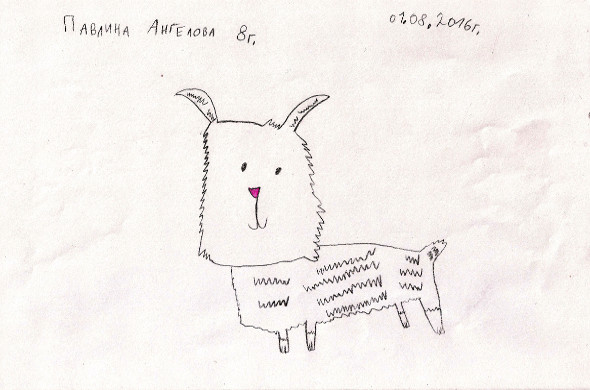 Павлина Ангелова 8г.
01.08.2016г.